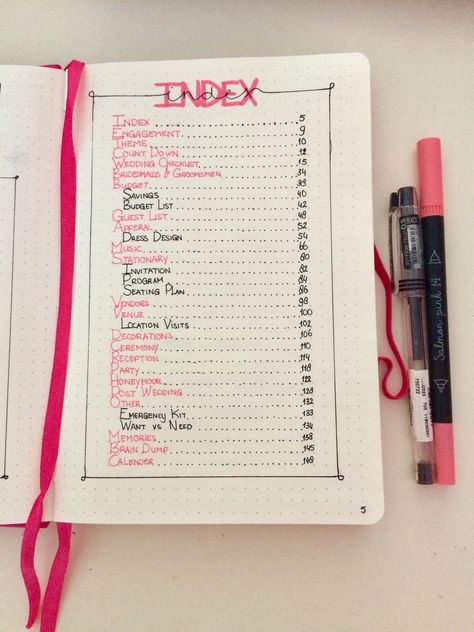 INDEX
index
INDEX 5
ENGAGEMENT 9
THEME 10
COUNT DOWN 12
WEDDING CHECKLIST 15
BRIDESMAIDS & GROOMSMEN 34
BUDGET 39
SAVINGS 40
BUDGET LIST 42
GUEST LIST 48
APPERAL 52
DRESS DESIGN 54
MUSIC 66
STATIONARY 80
INVITATION 82
PROGRAM 84
SEATING PLAN 86
VENDORS 98
VENUE 100
LOCATION VISITS 102
DECORATIONS 106
CEREMONY 110
RECEPTION 114
PARTY 118
HONEYMOON 122
POST WEDDING 128
OTHER 132
EMERGENCY KIT 133
WANT VS NEED 134
MEMORIES 138
BRAIN DUMP 145
CALENDER 148
5
0.5 BLACK
Salmon pink 14